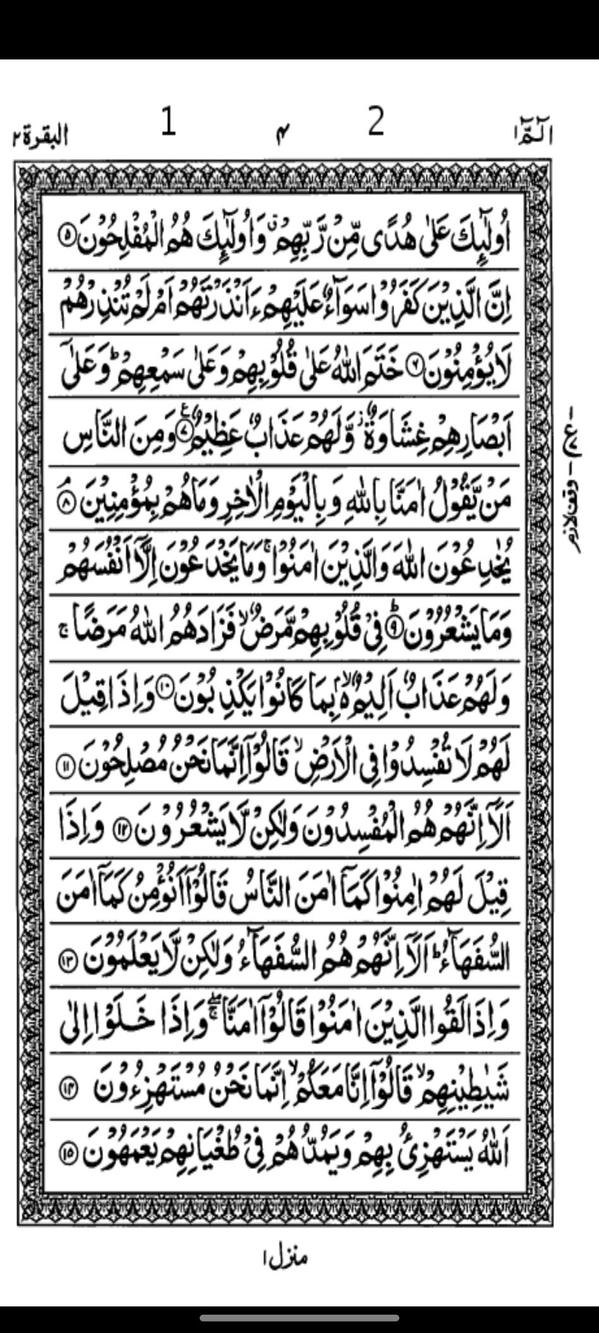 الٓمّٓ ۱ 2 ۴ 1 البقرة ۲
اُولٰٓئِكَ عَلٰى هُدًى مِّنْ رَّبِّهِمْ ۗ وَاُولٰٓئِكَ هُمُ الْمُفْلِحُوْنَ ۵
اِنَّ الَّذِيْنَ كَفَرُوْا سَوَآءٌ عَلَيْهِمْ ءَاَنْذَرْتَهُمْ اَمْ لَمْ تُنْذِرْهُمْ
لَا يُؤْمِنُوْنَ ۶ خَتَمَ اللّٰهُ عَلٰى قُلُوْبِهِمْ وَعَلٰى سَمْعِهِمْ ؕ وَعَلٰٓى
اَبْصَارِهِمْ غِشَاوَةٌ ز وَّلَهُمْ عَذَابٌ عَظِيْمٌ ۷ ع وَمِنَ النَّاسِ
مَنْ يَّقُوْلُ اٰمَنَّا بِاللّٰهِ وَبِالْيَوْمِ الْاٰخِرِ وَمَا هُمْ بِمُؤْمِنِيْنَ ۘ ۸
يُخٰدِعُوْنَ اللّٰهَ وَالَّذِيْنَ اٰمَنُوْا ۚ وَمَا يَخْدَعُوْنَ اِلَّآ اَنْفُسَهُمْ
وَمَا يَشْعُرُوْنَ ؕ ۹ فِيْ قُلُوْبِهِمْ مَّرَضٌ ۙ فَزَادَهُمُ اللّٰهُ مَرَضًا ج
وَلَهُمْ عَذَابٌ اَلِيْمٌ ۢ ۙ بِمَا كَانُوْا يَكْذِبُوْنَ ۱۰ وَاِذَا قِيْلَ
لَهُمْ لَا تُفْسِدُوْا فِى الْاَرْضِ ۙ قَالُوْٓا اِنَّمَا نَحْنُ مُصْلِحُوْنَ ۱۱
اَلَآ اِنَّهُمْ هُمُ الْمُفْسِدُوْنَ وَلٰكِنْ لَّا يَشْعُرُوْنَ ۱۲ وَاِذَا
قِيْلَ لَهُمْ اٰمِنُوْا كَمَآ اٰمَنَ النَّاسُ قَالُوْٓا اَنُؤْمِنُ كَمَآ اٰمَنَ
السُّفَهَآءُ ؕ اَلَآ اِنَّهُمْ هُمُ السُّفَهَآءُ وَلٰكِنْ لَّا يَعْلَمُوْنَ ۱۳
وَاِذَا لَقُوا الَّذِيْنَ اٰمَنُوْا قَالُوْٓا اٰمَنَّا ۖۚ وَاِذَا خَلَوْا اِلٰى
شَيٰطِيْنِهِمْ ۙ قَالُوْٓا اِنَّا مَعَكُمْ ۙ اِنَّمَا نَحْنُ مُسْتَهْزِءُوْنَ ۱۴
اَللّٰهُ يَسْتَهْزِئُ بِهِمْ وَيَمُدُّهُمْ فِيْ طُغْيَانِهِمْ يَعْمَهُوْنَ ۱۵
وقف لازم
منزل ۱